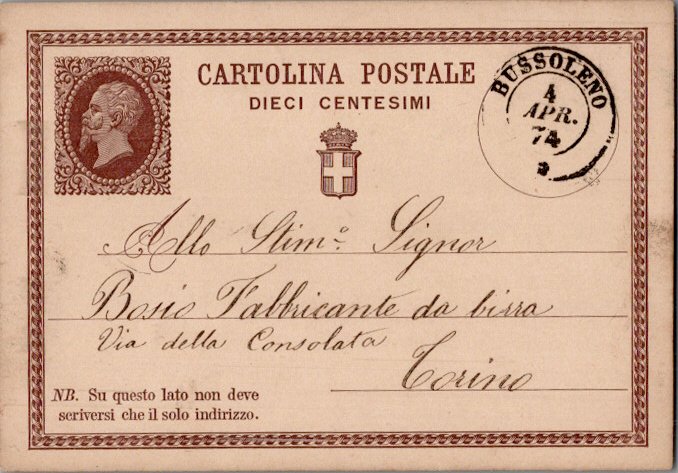 CARTOLINA POSTALE
DIECI CENTESIMI
BUSSOLENO
4
APR.
74
Allo Stimo. Signor
Bosio Fabbricante da birra
Via della Consolata
Torino
NB. Su questo lato non deve
scriversi che il solo indirizzo.